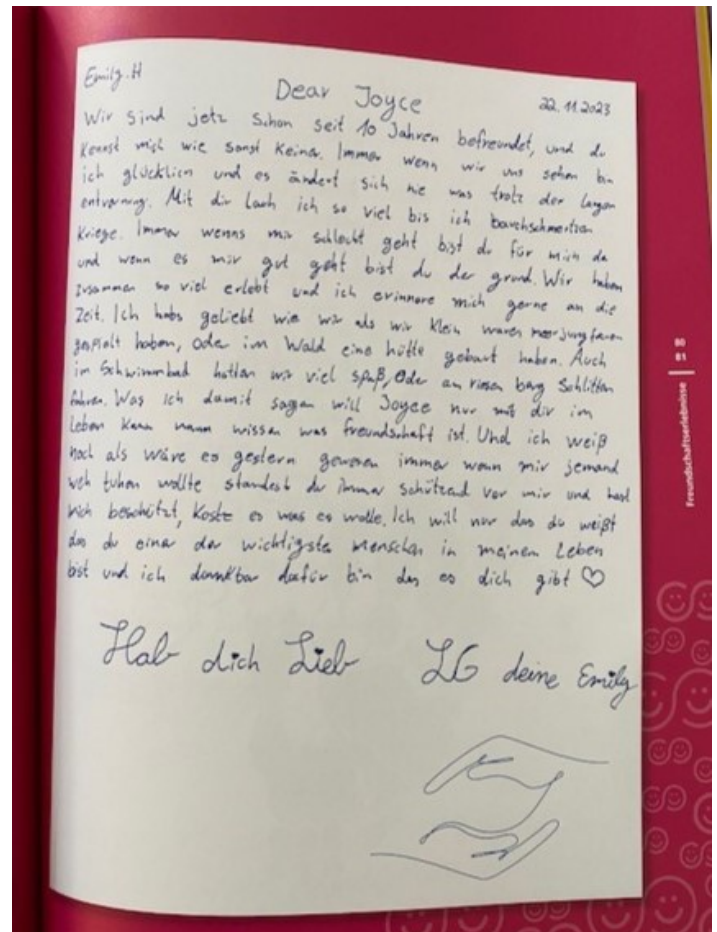 Emily.H
Dear Joyce
22.11.2023
Wir sind jetz schon seit 10 Jahren befreundet, und du
kennst mich wie sonst keiner. Immer wenn wir uns sehen bin
ich glücklich und es ändert sich nie was trotz der langen
entvernung. Mit dir lach ich so viel bis ich bauchschmertzen
kriege. Immer wenns mir schlecht geht bist du für mich da
und wenn es mir gut geht bist du der grund. Wir haben
zusammen so viel erlebt und ich erinnere mich gerne an die
Zeit. Ich habs geliebt wie wir als wir klein waren meerjungfauen
gespielt haben, oder im Wald eine hütte gebaut haben. Auch
im Schwimmbad hatten wir viel spaß, Oder am riesen berg Schlitten
fahren. Was ich damit sagen will Joyce nur mit dir im
Leben kann mann wissen was freundschaft ist. Und ich weiß
noch als wäre es gestern gewesen immer wenn mir jemand
weh tuhen wollte standest du immer schützend vor mir und hast
mich beschützt, koste es was es wolle. Ich will nur das du weißt
das du einer der wichtigsten menschen in meinem Leben
bist und ich dankbar dafür bin das es dich gibt ♡
Hab dich Lieb LG deine Emily
80
81
Freundschaftserlebnisse